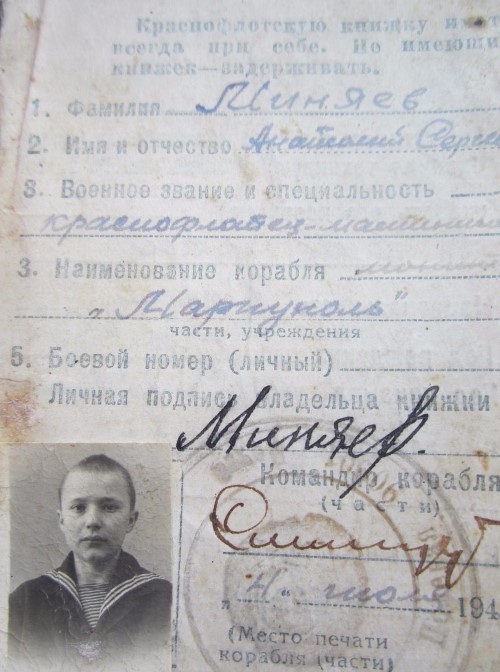 Краснофлотскую книжку име
всегда при себе. Не имеющи
книжек—задерживать.
1. Фамилия Миняев
2. Имя и отчество Анатолий Серге
3. Военное звание и специальность
краснофлотец-
3. Наименование корабля
„Мариуполь"
части, учреждения
5. Боевой номер (личный)
Личная подпись владельца книжки
Миняев.
Командир корабля
(части)
„4" июля 194
(Место печати
корабля (части)